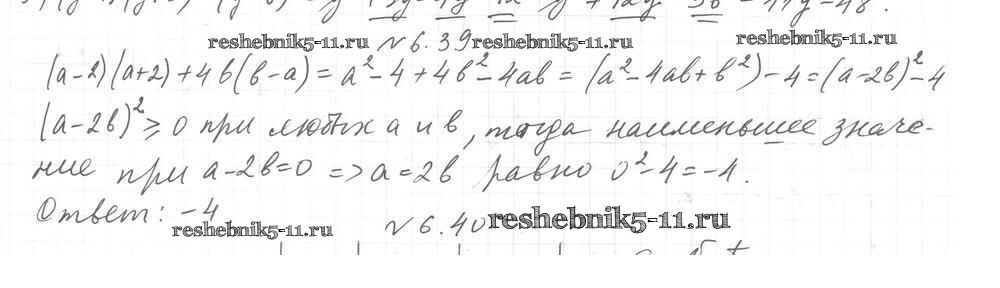 reshebnik5-11.ru №6.39 reshebnik5-11.ru reshebnik5-11.ru
(a-2)(a+2)+4b(b-a)=a²-4+4b²-4ab=(a²-4ab+b²)-4=(a-2b)²-4
(a-2b)²≥0 при любых a и b, тогда наименьшее значе-
ние при a-2b=0 => a=2b равно 0²-4=-4.
Ответ: -4
reshebnik5-11.ru №6.40 reshebnik5-11.ru